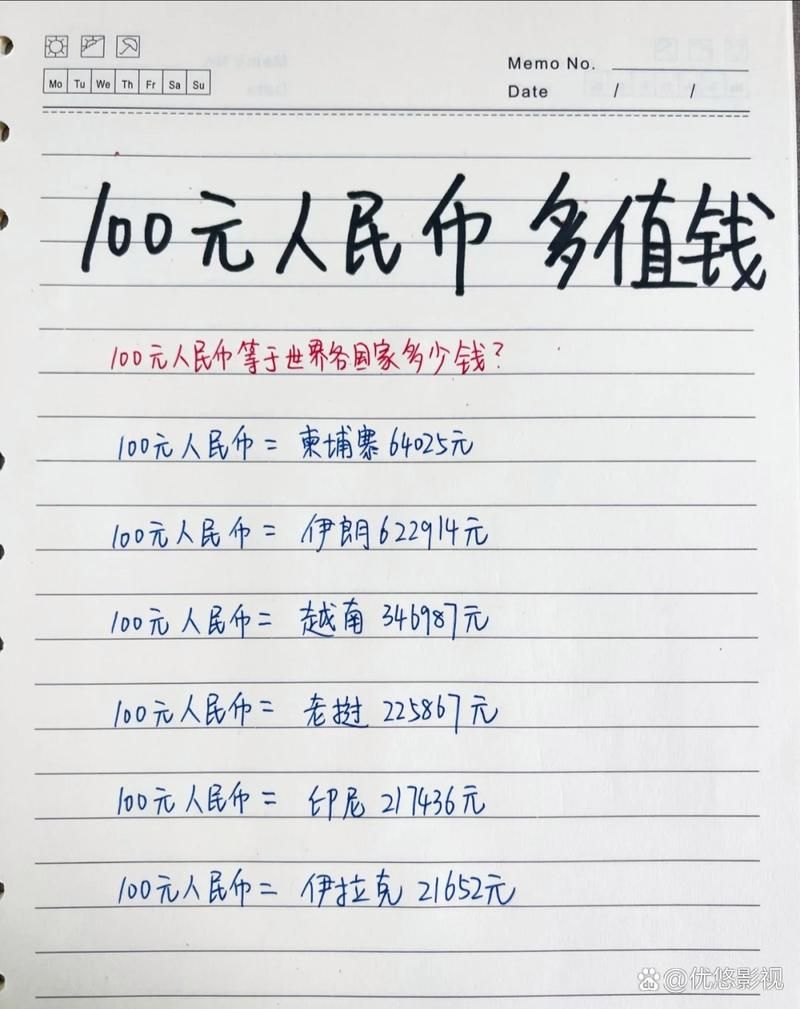 Mo Tu We Th Fr Sa Su
Memo No.
Date / /
100元人民币 多值钱
100元人民币等于世界各国家多少钱?
100元人民币= 柬埔寨64025元
100元人民币= 伊朗622914元
100元人民币= 越南 346987元
100元人民币= 老挝 225867元
100元人民币= 印尼 217436元
100元人民币= 伊拉克 21652元
du @优悠影视